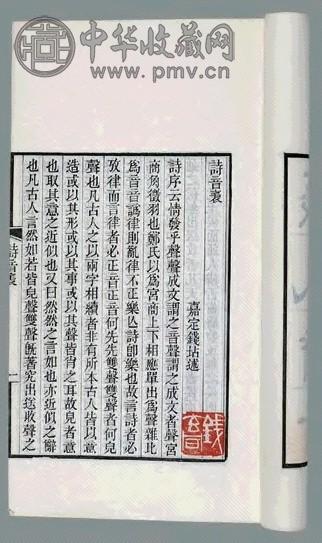 中华收藏网
www.pmv.cn
詩音表
嘉定錢坫述
詩序云情發乎聲聲成文謂之音聲謂之成文者聲宮
商角徵羽也鄭氏以爲宮商上下相應單出爲聲雜比
爲音音譌律則亂律不正樂仏詩卽樂也故言詩者必
攷律而言律者必正音正音何先先雙聲雙聲者何皃
聲也凡古人之以兩字相續者非有所本古人皆以意
造或以其形或以其事或以其聲皆肖之耳故皃者意
也取其意之近似也又曰然然之言如也亦近似之辭
也凡古人言然如若皆皃聲雙聲旣著究出送收聲之
詩音表
一